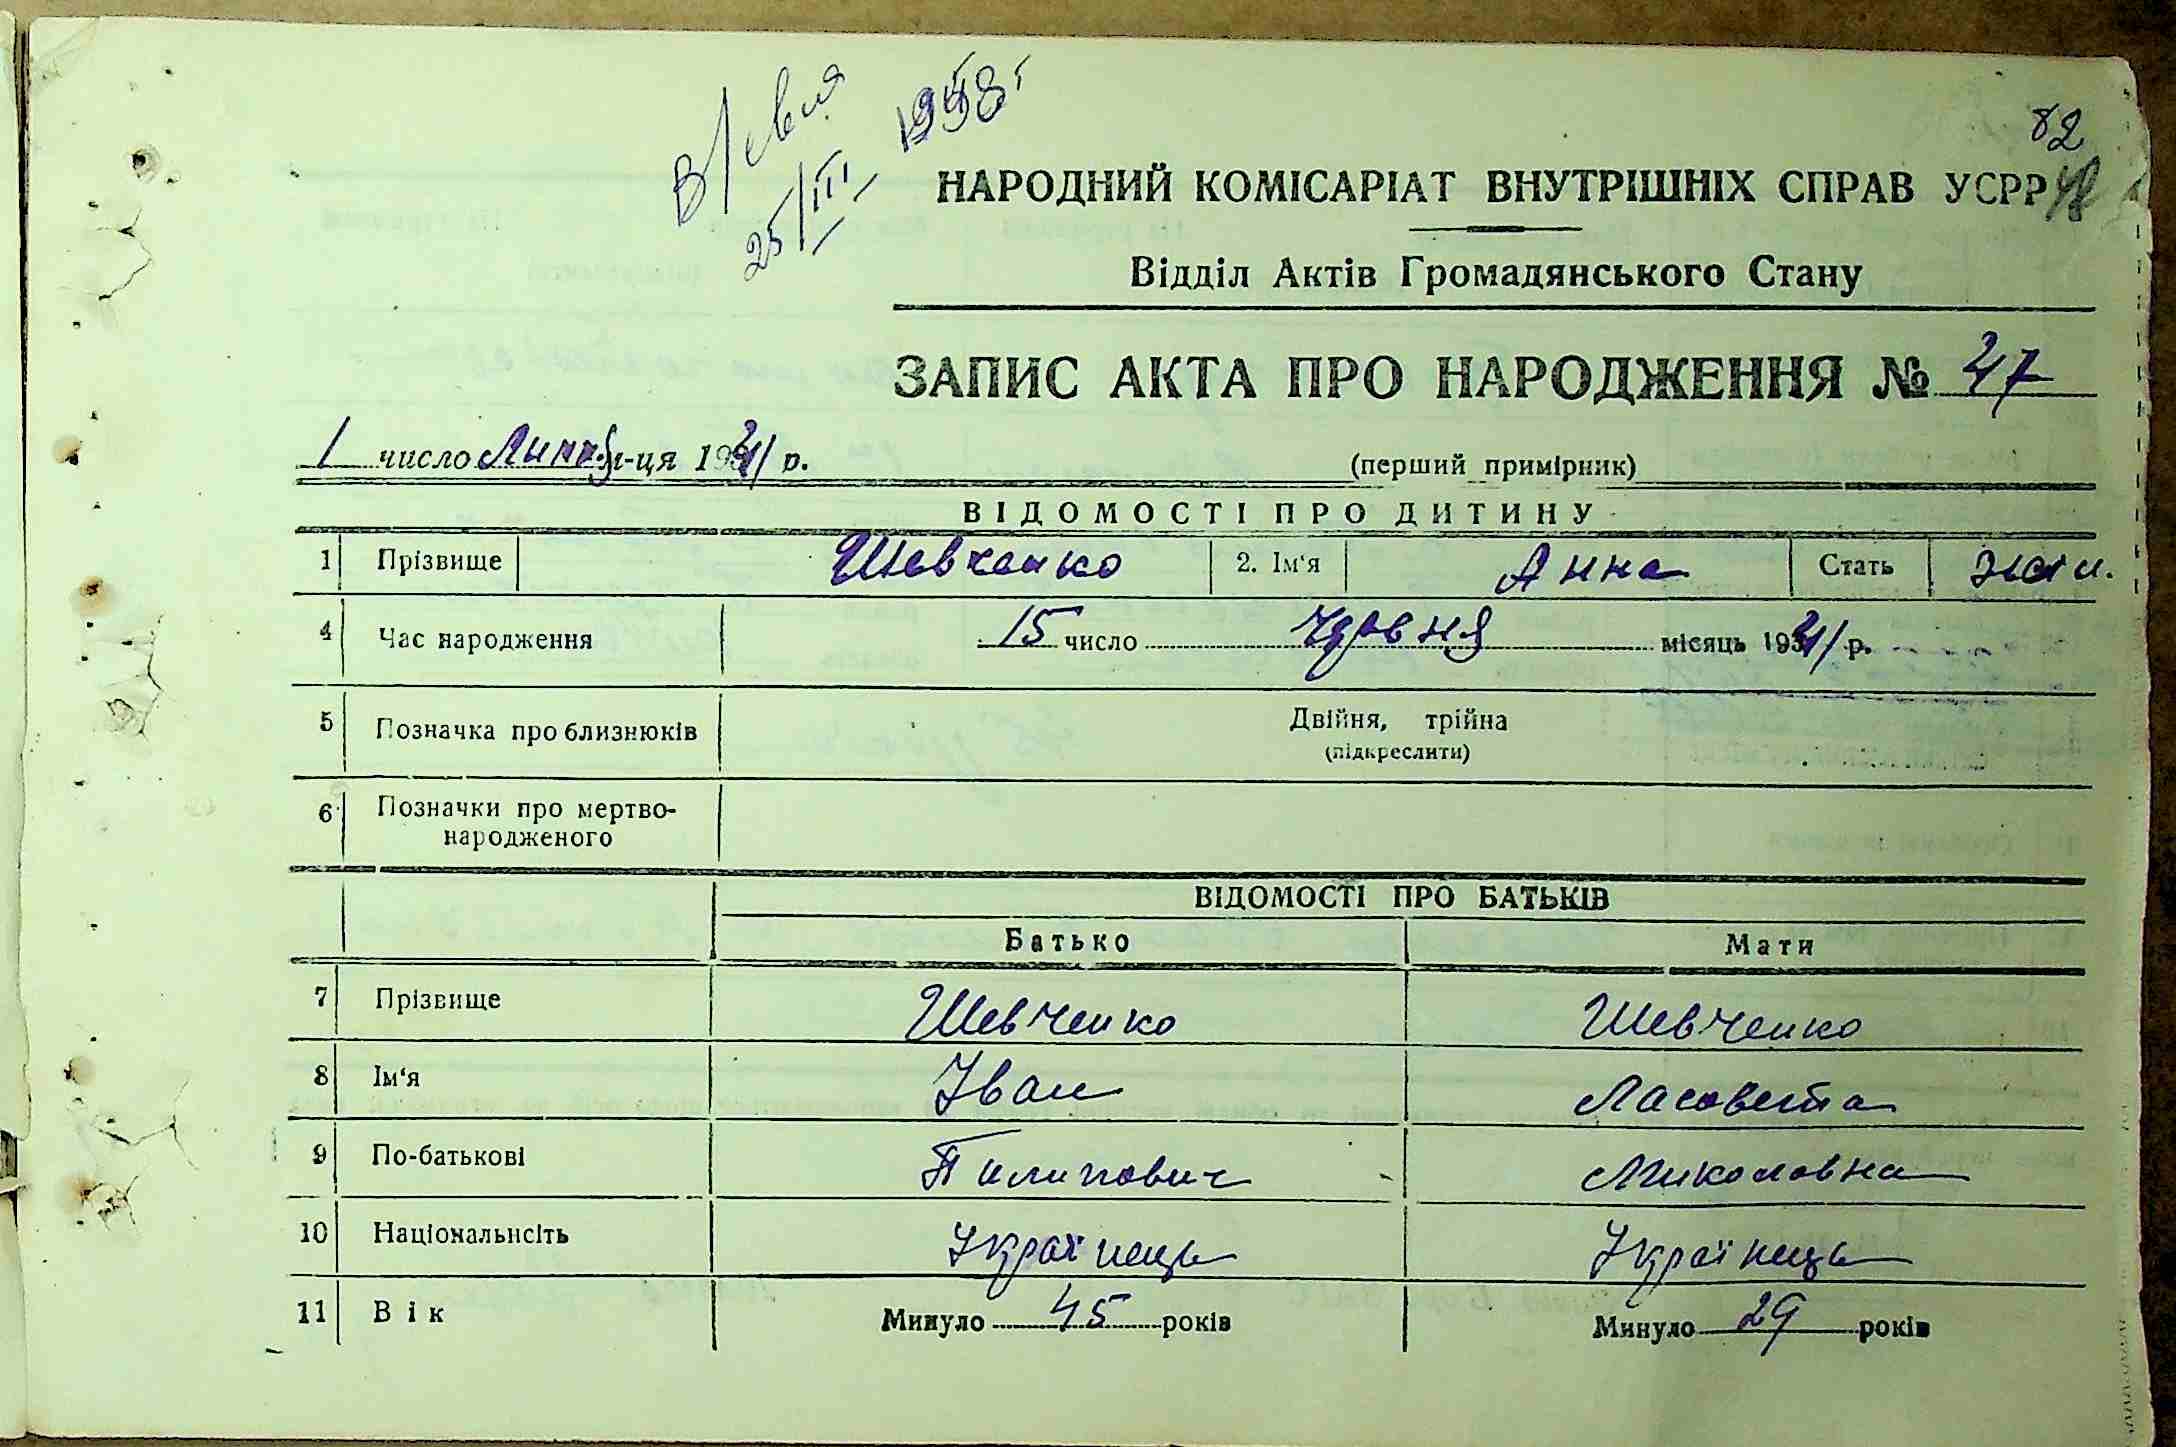 В/свид
25/III 1958 г
82
НАРОДНИЙ КОМІСАРІАТ ВНУТРІШНІХ СПРАВ УСРР
Відділ Актів Громадянського Стану
ЗАПИС АКТА ПРО НАРОДЖЕННЯ № 47
1 число Липня м-ця 1941 р. (перший примірник)
ВІДОМОСТІ ПРО ДИТИНУ
1 Прізвище Шевченко 2. Ім'я Анна Стать жін.
4 Час народження 15 число Червня місяць 1941 р.
5 Позначка про близнюків Двійня, трійна
(підкреслити)
6 Позначки про мертво-
народженого
ВІДОМОСТІ ПРО БАТЬКІВ
Батько Мати
7 Прізвище Шевченко Шевченко
8 Ім'я Іван Ласовета
9 По-батькові Пилипович Миколовна
10 Національнсіть Українець Українець
11 Вік Минуло 45 років Минуло 29 років